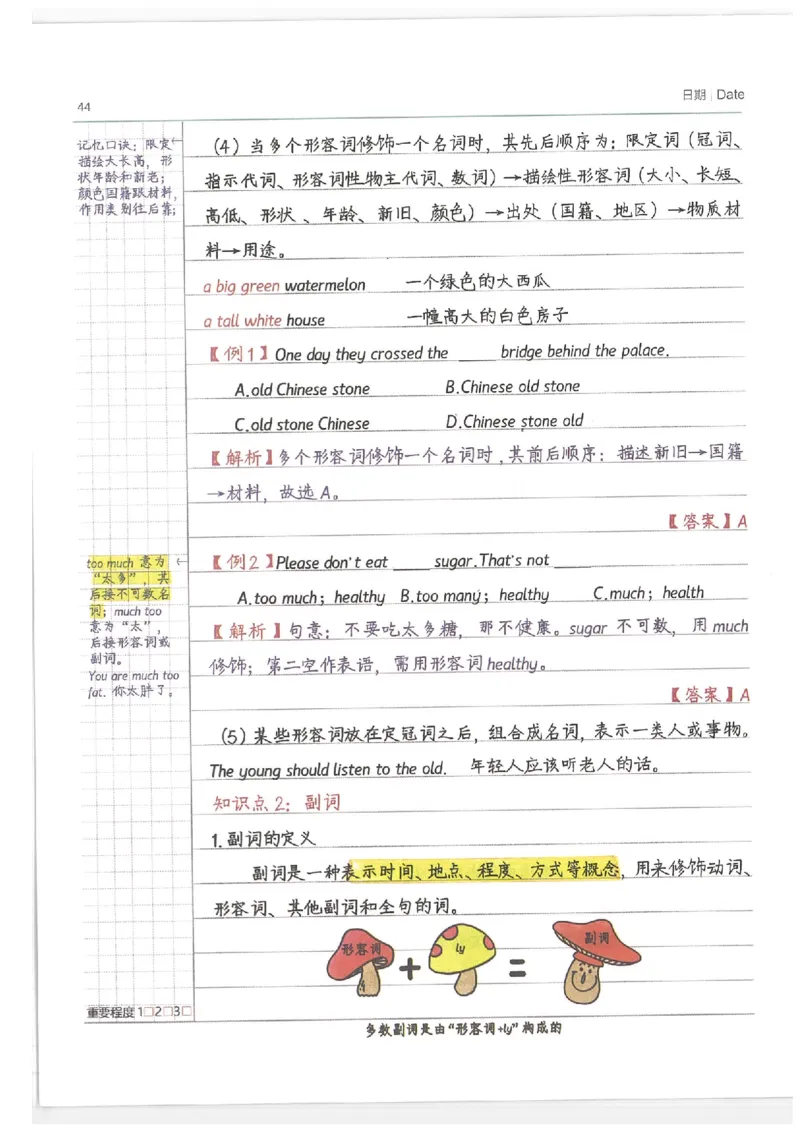 44
日期 Date
记忆口诀：限定
描绘大长高，形
状年龄和新老；
颜色国籍跟材料，
作用类别往后靠；
（4）当多个形容词修饰一个名词时，其先后顺序为：限定词（冠词、
指示代词、形容词性物主代词、数词）→描绘性形容词（大小、长短、
高低、形状、年龄、新旧、颜色）→出处（国籍、地区）→物质材
料→用途。
a big green watermelon 一个绿色的大西瓜
a tall white house 一幢高大的白色房子
【例1】One day they crossed the ____ bridge behind the palace.
A.old Chinese stone B.Chinese old stone
C.old stone Chinese D.Chinese stone old
【解析】多个形容词修饰一个名词时，其前后顺序：描述新旧→国籍
→材料，故选A。
【答案】A
too much 意为
“太多”，其
后接不可数名
词；much too
意为“太”，
后接形容词或
副词。
You are much too
fat. 你太胖了。
【例2】Please don't eat ____ sugar.That's not ______
A.too much；healthy B.too many；healthy C.much；health
【解析】句意：不要吃太多糖，那不健康。sugar 不可数，用 much
修饰；第二空作表语，需用形容词 healthy。
【答案】A
（5）某些形容词放在定冠词之后，组合成名词，表示一类人或事物。
The young should listen to the old. 年轻人应该听老人的话。
知识点2：副词
1.副词的定义
副词是一种表示时间、地点、程度、方式等概念，用来修饰动词、
形容词、其他副词和全句的词。
形容词 + ly = 副词
重要程度 1□2□3□
多数副词是由“形容词+ly”构成的